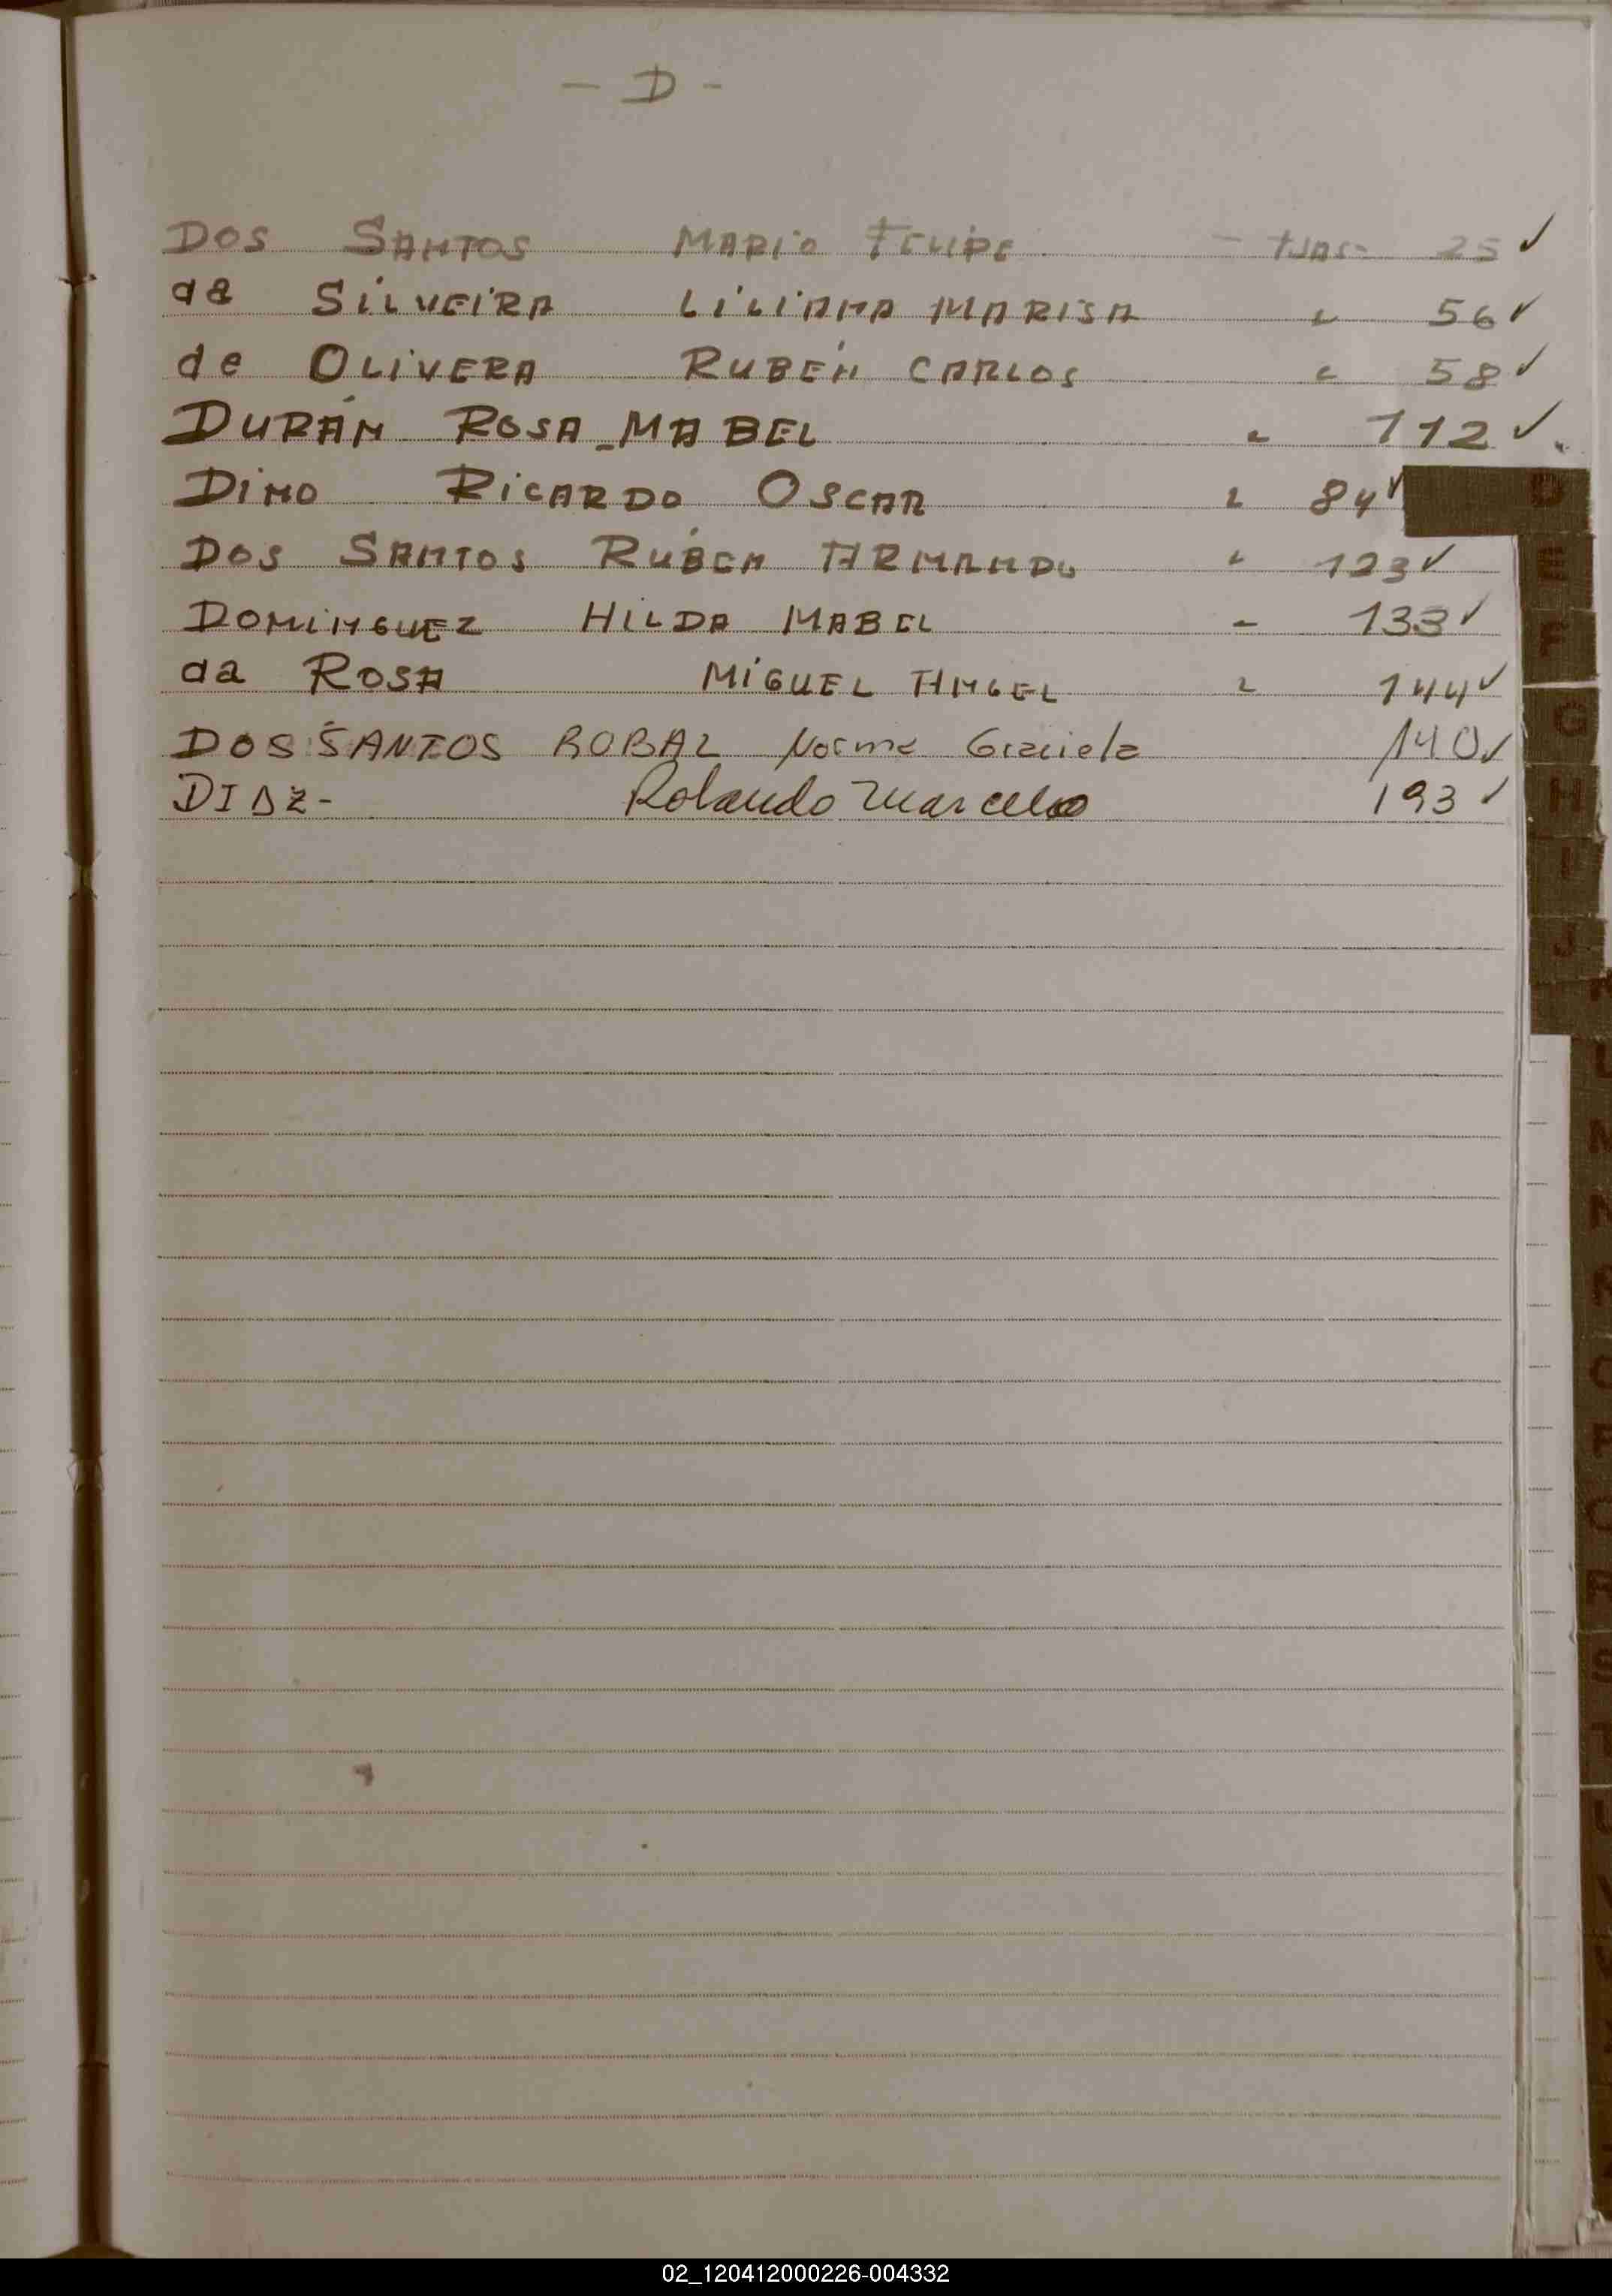 - D -
DOS SANTOS MARIO FELIPE - 25 ✓
da SILVEIRA LILIANA MARISA " 56 ✓
de OLIVERA RUBÉN CARLOS " 58 ✓
DURÁN ROSA MABEL " 112 ✓
DINO RICARDO OSCAR " 84 ✓
DOS SANTOS RUBÉN ARMANDO " 123 ✓
DOMINGUEZ HILDA MABEL - 133 ✓
da ROSA MIGUEL ANGEL " 144 ✓
DOS SANTOS ROBAL Norma Graciela 140 ✓
DIAZ - Rolando Marcelo 193 ✓
D
E
F
G
H
I
J
L
M
N
O
P
Q
R
S
T
U
V
02_120412000226-004332